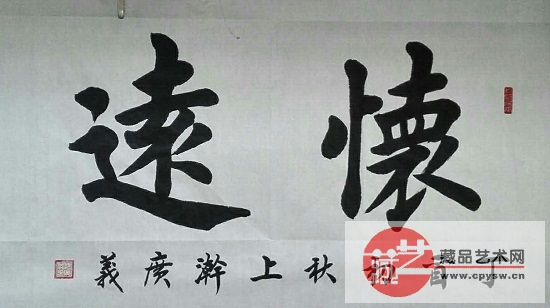 懷遠
丁酉初秋上澣廣義
艺
藏品艺术网
www.cpysw.cn